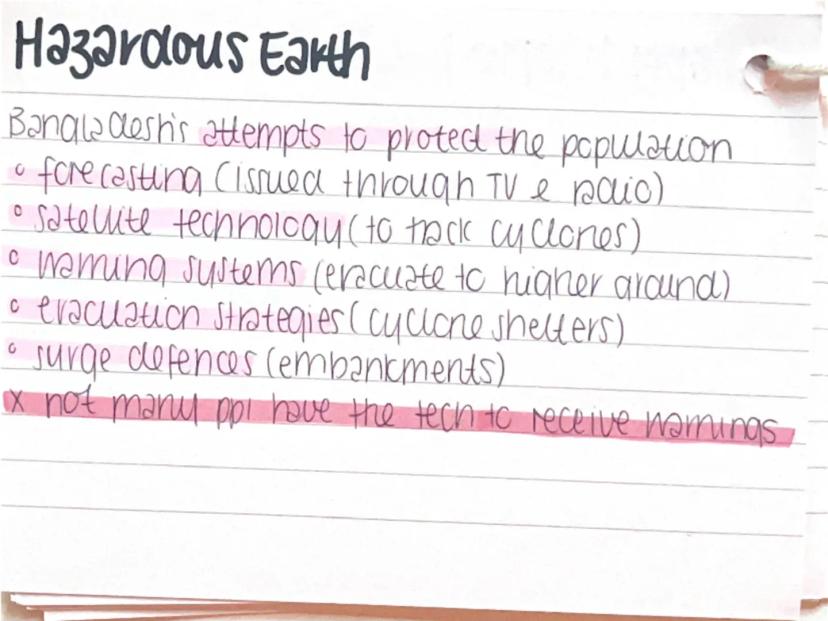 Hazardous Earth
Bangladesh's attempts to protect the population
° forecasting (issued through TV & radio)
° satellite technology (to track cyclones)
° warning systems (evacuate to higher ground)
° evacuation strategies (cyclone shelters)
° surge defences (embankments)
x not many ppl have the tech to receive warnings